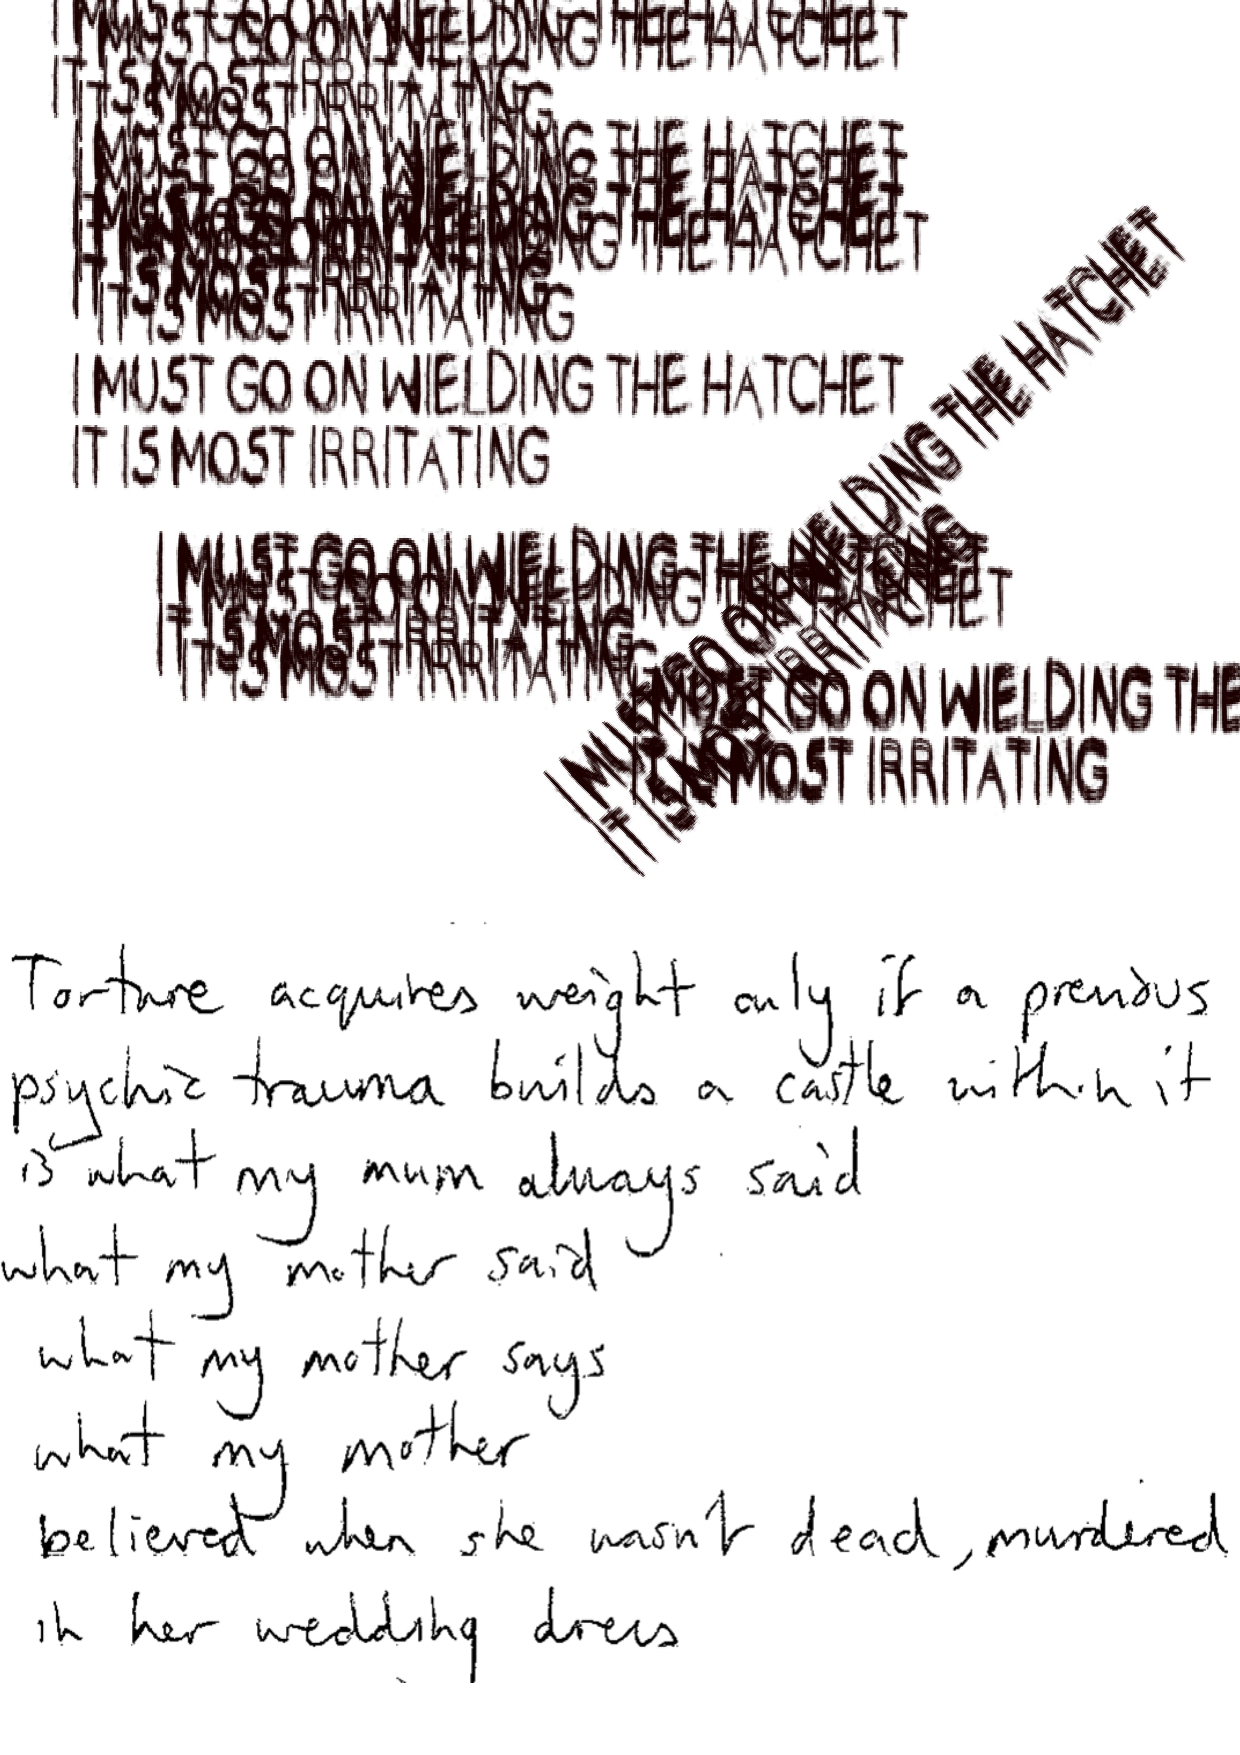 I MUST GO ON WIELDING THE HATCHET
IT IS MOST IRRITATING
I MUST GO ON WIELDING THE HATCHET
I MUST GO ON WIELDING THE HATCHET
IT IS MOST IRRITATING
I MUST GO ON WIELDING THE HATCHET
IT IS MOST IRRITATING
I MUST GO ON WIELDING THE HATCHET
IT IS MOST IRRITATING
I MUST GO ON WIELDING THE HATCHET
IT IS MOST IRRITATING
I MUST GO ON WIELDING THE
IT IS MOST IRRITATING
Torture acquires weight only if a previous
psychic trauma builds a castle within it
is what my mum always said
what my mother said
what my mother says
what my mother
believed when she wasn't dead, murdered
in her wedding dress